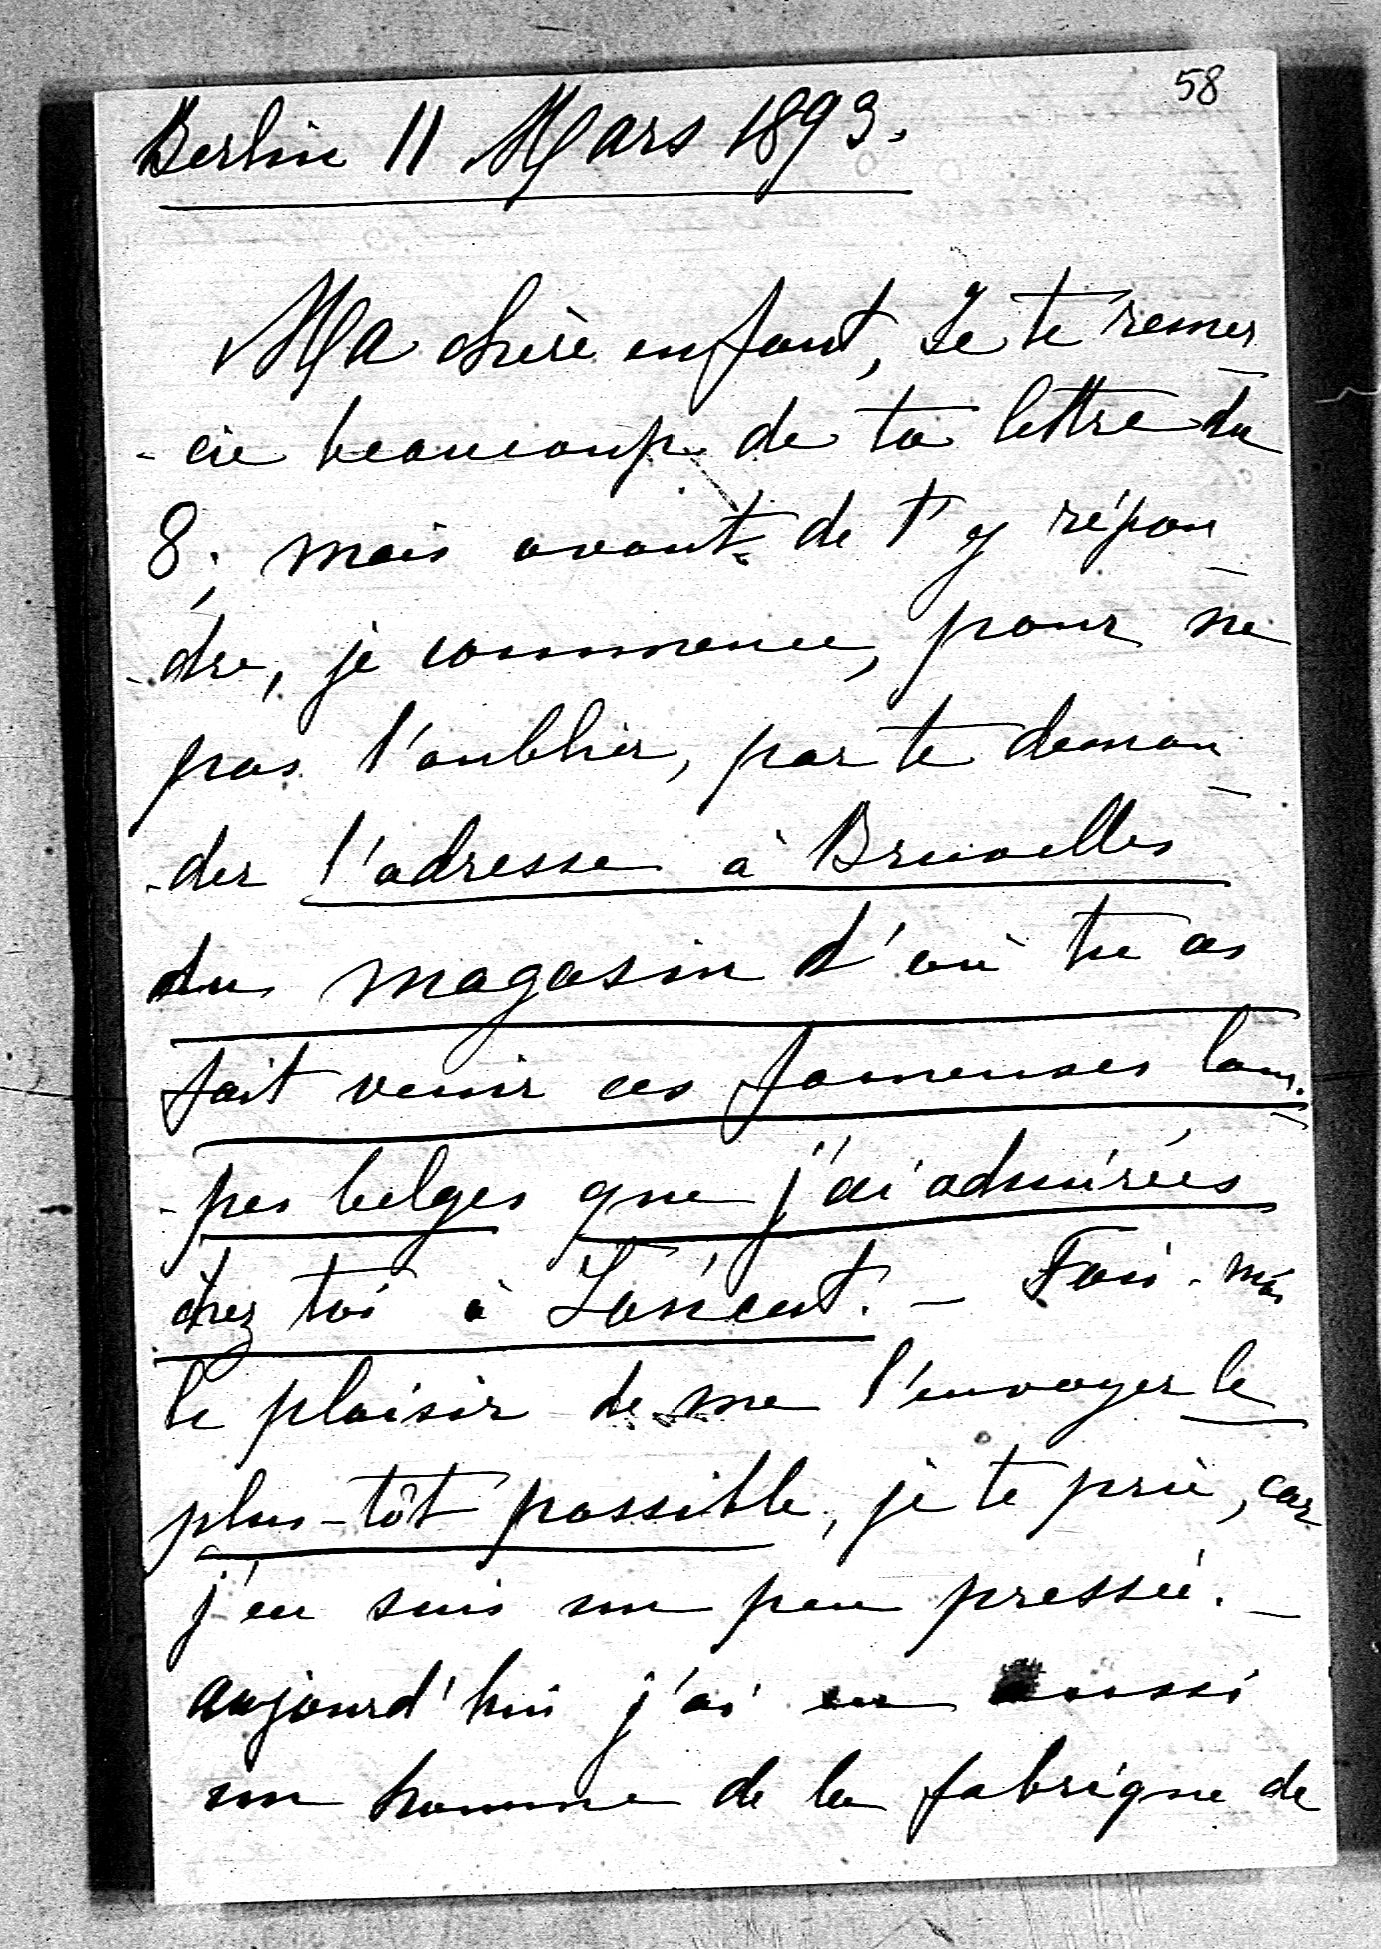 58
Berlin 11 Mars 1893.
Ma chère enfant, Je te remer
-cie beaucoup de ta lettre du
8; mais avant de t'y répon
-dre, je commence, pour ne
pas l'oublier, par te deman
-der l'adresse à Bruxelles
du magasin d'où tu as
fait venir ces fameuses lam-
-pes belges que j'ai admirées
chez toi à Łańcut. – Fais-moi
le plaisir de me l'envoyer le
plus-tôt possible, je te prie, car
j'en suis un peu pressée. –
aujourd'hui j'ai eu aussi
un homme de la fabrique de